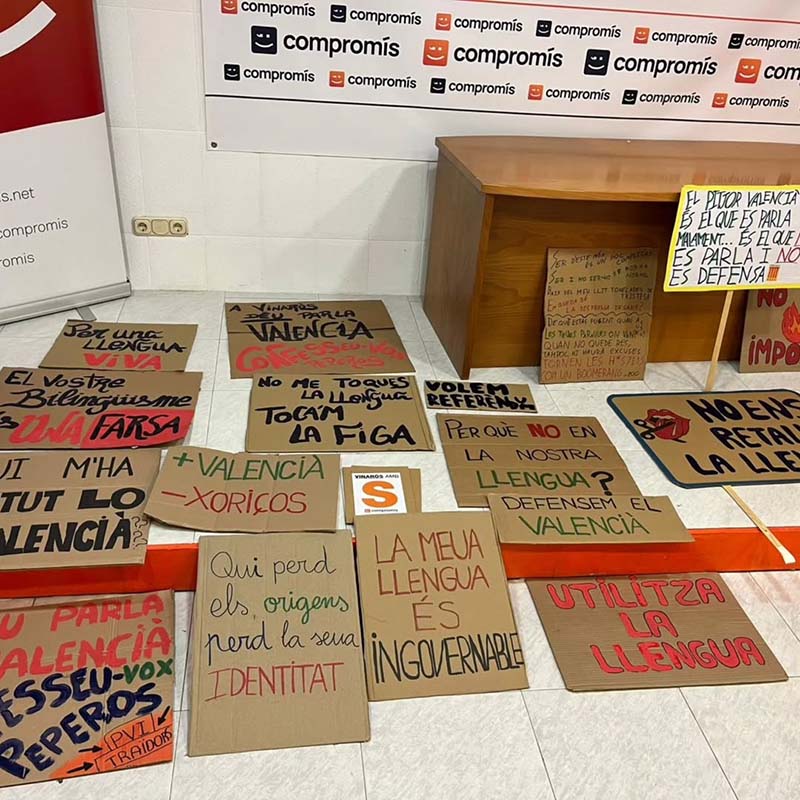 compromís compromís compromís compromís compromís compromís
compromís compromís compromís
compromís compromís compromís compromís compromís compromís
s.net
compromis
omis
EL PITJOR VALENCIÀ
ÉS EL QUE ES PARLA
MALAMENT... ÉS EL QUE
ES PARLA I NO
ES DEFENSA
NO
IMPO
Per una
LLENGUA
VIVA
A VINARÒS
DEU PARLA
VALENCIÀ
EL VOSTRE
Bilingüisme
ÉS UNA FARSA
NO ME TOQUES
LA LLENGUA
TOCA'M
LA FIGA
VOLEM
REFERÈNDUM
UI M'HA
TUT LO
VALENCIÀ
+VALENCIÀ
-XORIÇOS
VINARÒS AMB
S
PER QUÈ NO EN
LA NOSTRA
LLENGUA?
DEFENSEM EL
VALENCIÀ
NO ENS
RETAL
LA LLEN
U PARLA
VALENCIÀ
FESSEU-VOX
PEPEROS
PVI
TRAÏDORS
Qui perd
els origens
perd la seua
IDENTITAT
LA MEUA
LLENGUA
ÉS
INGOVERNABLE
UTILITZA
LA
LLENGUA